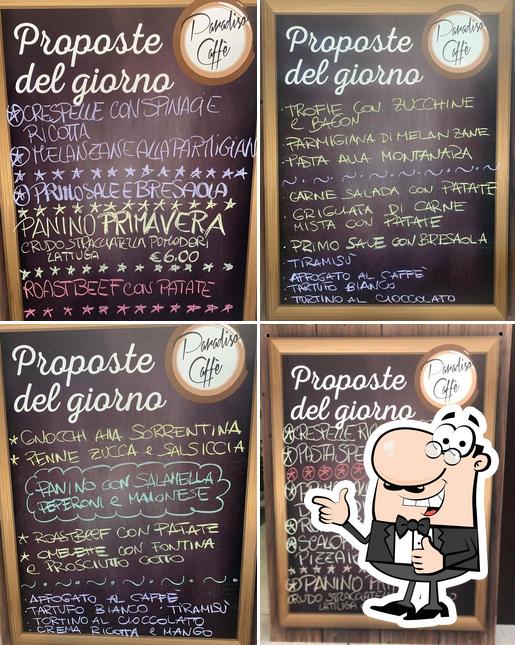 Paradiso
Caffè
Proposte
del giorno
CRESPELLE CON SPINACI E
RICOTTA
MELANZANE ALLA PARMIGIAN
PRIMO SALE E BRESAOLA
PANINO PRIMAVERA
CRUDO STRACCIATELLA POMODORI
LATTUGA €6.00
ROASTBEEF CON PATATE
Paradiso
Caffè
Proposte
del giorno
TROFIE CON ZUCCHINE
E BACON
PARMIGIANA DI MELANZANE
PASTA ALLA MONTANARA
CARNE SALADA CON PATATE
GRIGLIATA DI CARNE
MISTA CON PATATE
PRIMO SALE CON BRESAOLA
TIRAMISÙ
AFFOGATO AL CAFFÈ
TARTUFO BIANCO
TORTINO AL CIOCCOLATO
Paradiso
Caffè
Proposte
del giorno
GNOCCHI ALLA SORRENTINA
PENNE ZUCCA E SALSICCIA
PANINO CON SALAMELLA
PEPERONI E MAIONESE
ROASTBEEF CON PATATE
OMELETTE CON FONTINA
E PROSCIUTTO COTTO
AFFOGATO AL CAFFE
TARTUFO BIANCO · TIRAMISÙ
TORTINO AL CIOCCOLATO
CREMA RICOTTA E MANGO
Paradiso
Caffè
Proposte
del giorno
CRESPELLE
PASTA
PANINO
CRUDO
LATTUGA